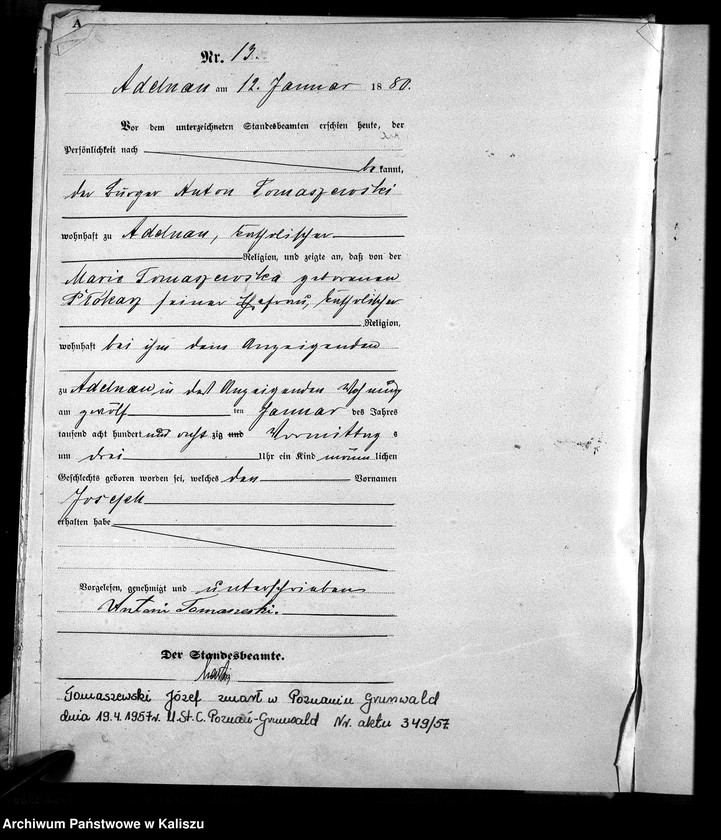 A
Nr. 13.
Adelnau am 12. Januar 1880.
Vor dem unterzeichneten Standesbeamten erschien heute, der
Persönlichkeit nach
bekannt,
der Bürger Anton Tomaszewski
wohnhaft zu Adelnau, katholischer
Religion, und zeigte an, daß von der
Marie Tomaszewska geborenen
seiner Ehefrau, katholischer
Religion,
wohnhaft bei ihm dem Anzeigenden
zu Adelnau, in des Anzeigenden Wohnung
am zwölften Januar des Jahres
tausend acht hundert und achtzig und Vormittags
um drei Uhr ein Kind männlichen
Geschlechts geboren worden sei, welches den Vornamen
Joseph
erhalten habe
Vorgelesen, genehmigt und unterschrieben
Antoni Tomaszeski.
Der Standesbeamte.
Tomaszewski Józef zmarł w Poznaniu Grunwald
dnia 19.4.1957r. U.St.C. Poznań-Grunwald Nr. aktu 349/57
Archiwum Państwowe w Kaliszu